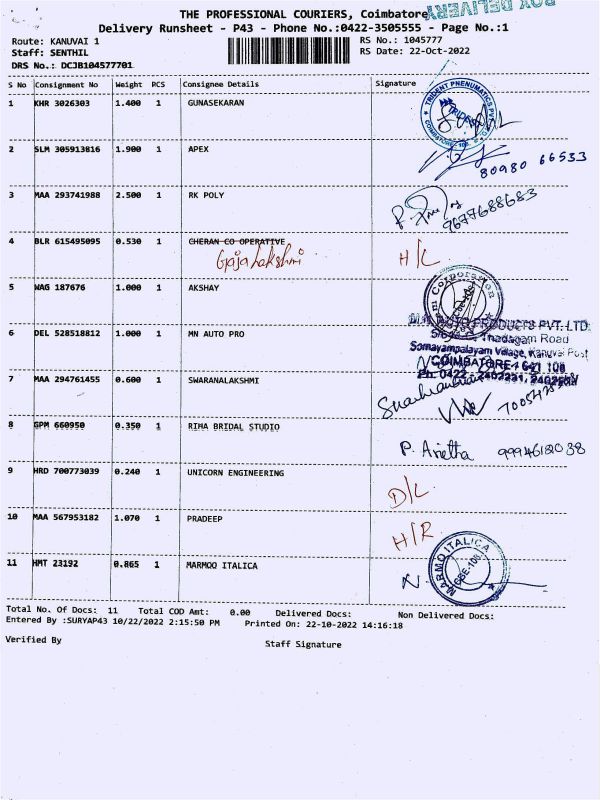 BOX DELIVERY
THE PROFESSIONAL COURIERS, Coimbatore
Delivery Runsheet - P43 - Phone No.:0422-3505555 - Page No.:1
Route: KANUVAI 1 RS No.: 1045777
Staff: SENTHIL RS Date: 22-Oct-2022
DRS No.: DCJB104577701
S No Consignment No Weight PCS Consignee Details Signature
1 KHR 3026303 1.400 1 GUNASEKARAN
TRIDENT PNENUMATICS PVT
2 SLM 305913816 1.900 1 APEX
80980 66533
3 MAA 293741988 2.500 1 RK POLY
9677688683
4 BLR 615495095 0.530 1 CHERAN CO OPERATIVE
Gajalakshmi H/L
5 WAG 187676 1.000 1 AKSHAY
Corporation
AUTO PRODUCTS PVT. LTD
6 DEL 528518812 1.000 1 MN AUTO PRO
Thadagam Road
Somayampalayam Village, Kanuvai Post
COIMBATORE - 641 108
7 MAA 294761455 0.600 1 SWARANALAKSHMI
Ph: 0422 - 2402231,
8 GPM 660950 0.350 1 RIHA BRIDAL STUDIO
P. Anetha 9994618038
9 HRD 700773039 0.240 1 UNICORN ENGINEERING
D/L
10 MAA 567953182 1.070 1 PRADEEP
H/R
11 HMT 23192 0.865 1 MARMOO ITALICA
MARMO ITALICA
CBE-108
N.
Total No. Of Docs: 11 Total COD Amt: 0.00 Delivered Docs: Non Delivered Docs:
Entered By :SURYAP43 10/22/2022 2:15:50 PM Printed On: 22-10-2022 14:16:18
Verified By Staff Signature